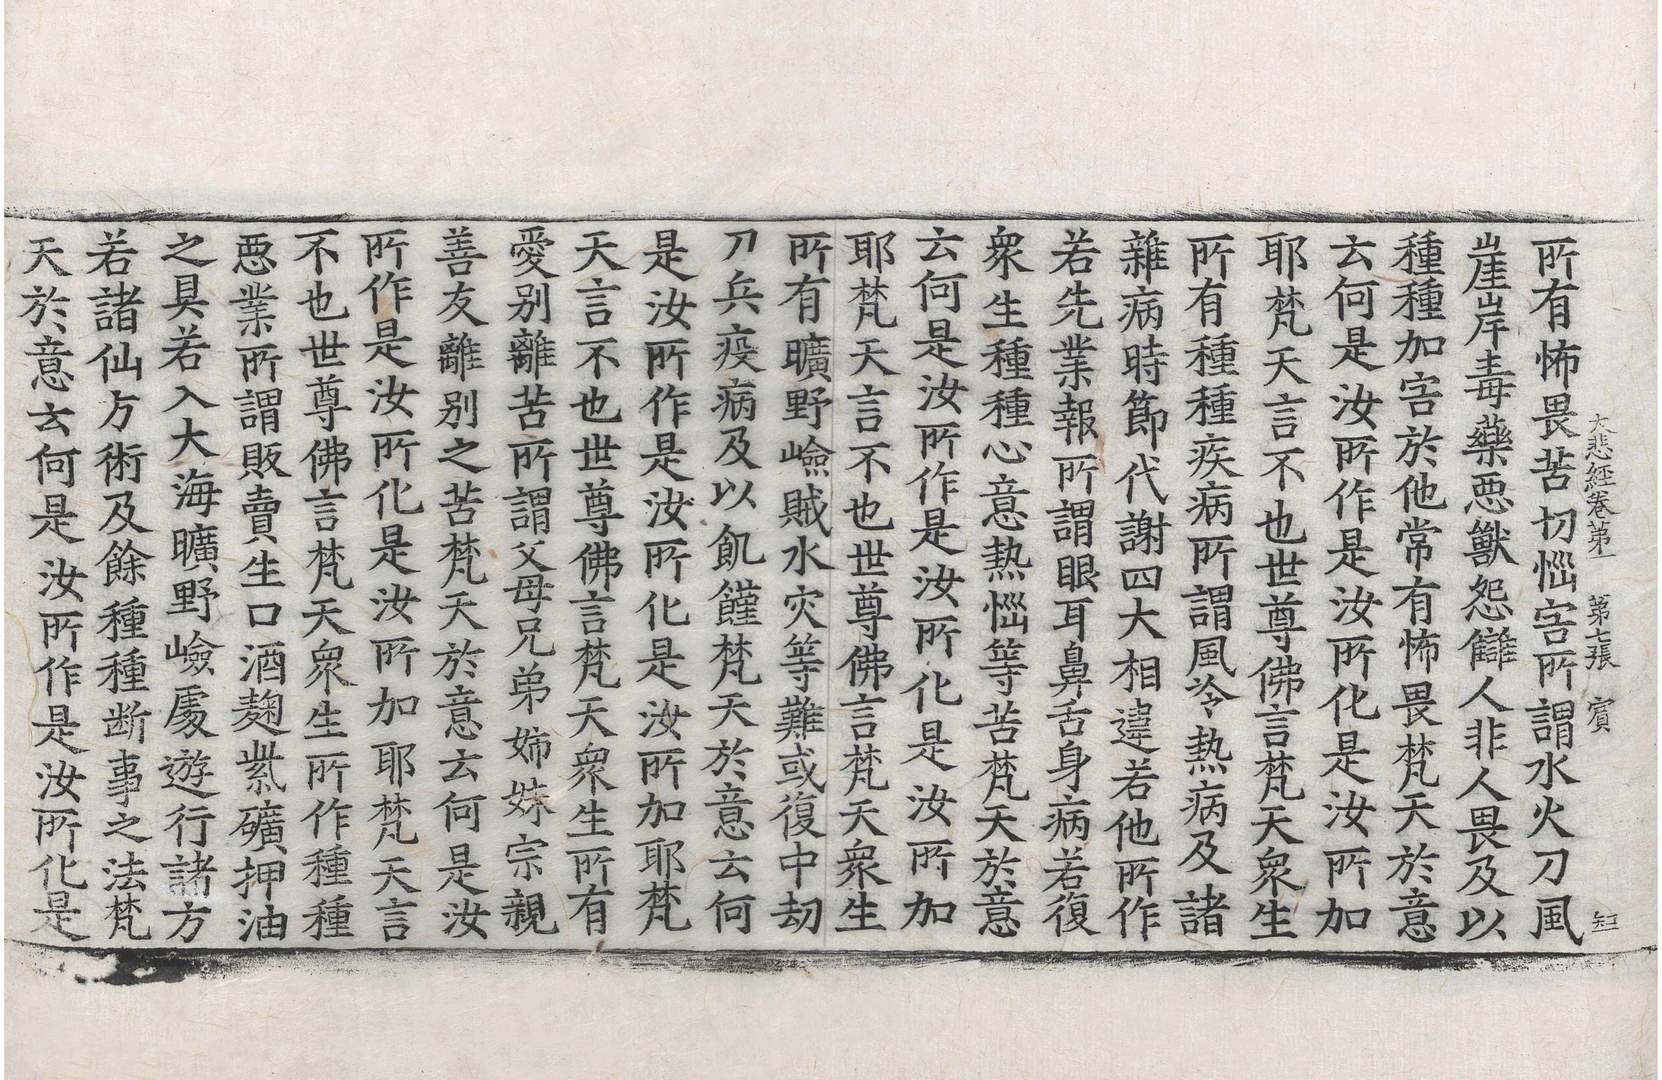 大悲經卷第一　第七張　賓　知
所有怖畏苦切惱害所謂水火刀風
崖岸毒藥惡獸怨讎人非人畏及以
種種加害於他常有怖畏梵天於意
云何是汝所作是汝所化是汝所加
耶梵天言不也世尊佛言梵天衆生
所有種種疾病所謂風冷熱病及諸
雜病時節代謝四大相違若他所作
若先業報所謂眼耳鼻舌身病若復
衆生種種心意熱惱等苦梵天於意
云何是汝所作是汝所化是汝所加
耶梵天言不也世尊佛言梵天衆生
所有曠野嶮賊水灾等難或復中劫
刀兵疫病及以飢饉梵天於意云何
是汝所作是汝所化是汝所加耶梵
天言不也世尊佛言梵天衆生所有
愛別離苦所謂父母兄弟姉妹宗親
善友離別之苦梵天於意云何是汝
所作是汝所化是汝所加耶梵天言
不也世尊佛言梵天衆生所作種種
惡業所謂敗賣生口酒麹紫礦押油
之具若入大海曠野嶮處遊行諸方
若諸仙方術及餘種種断事之法梵
天於意云何是汝所作是汝所化是